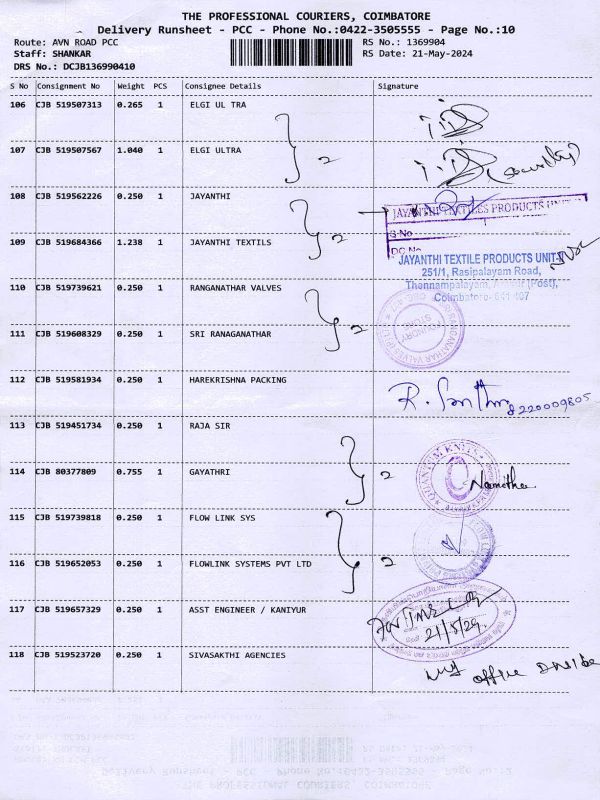 THE PROFESSIONAL COURIERS, COIMBATORE
Delivery Runsheet - PCC - Phone No.:0422-3505555 - Page No.:10
Route: AVN ROAD PCC
RS No.: 1369904
Staff: SHANKAR
RS Date: 21-May-2024
DRS No.: DCJB136990410
S No Consignment No Weight PCS Consignee Details Signature
106 CJB 519507313 0.265 1 ELGI UL TRA
107 CJB 519507567 1.040 1 ELGI ULTRA
2
(Security)
108 CJB 519562226 0.250 1 JAYANTHI
JAYANTHI TEXTILES PRODUCTS UNIT
S.No
DC No
109 CJB 519684366 1.238 1 JAYANTHI TEXTILS
2
JAYANTHI TEXTILE PRODUCTS UNIT-
251/1, Rasipalayam Road,
Thennampalayam, (Post),
Coimbatore- 641 407
110 CJB 519739621 0.250 1 RANGANATHAR VALVES
FOUNDRY
STORE
111 CJB 519608329 0.250 1 SRI RANAGANATHAR
2
112 CJB 519581934 0.250 1 HAREKRISHNA PACKING
8220009805
113 CJB 519451734 0.250 1 RAJA SIR
114 CJB 80377809 0.755 1 GAYATHRI
2
115 CJB 519739818 0.250 1 FLOW LINK SYS
116 CJB 519652053 0.250 1 FLOWLINK SYSTEMS PVT LTD
2
117 CJB 519657329 0.250 1 ASST ENGINEER / KANIYUR
21/5/24
118 CJB 519523720 0.250 1 SIVASAKTHI AGENCIES
office